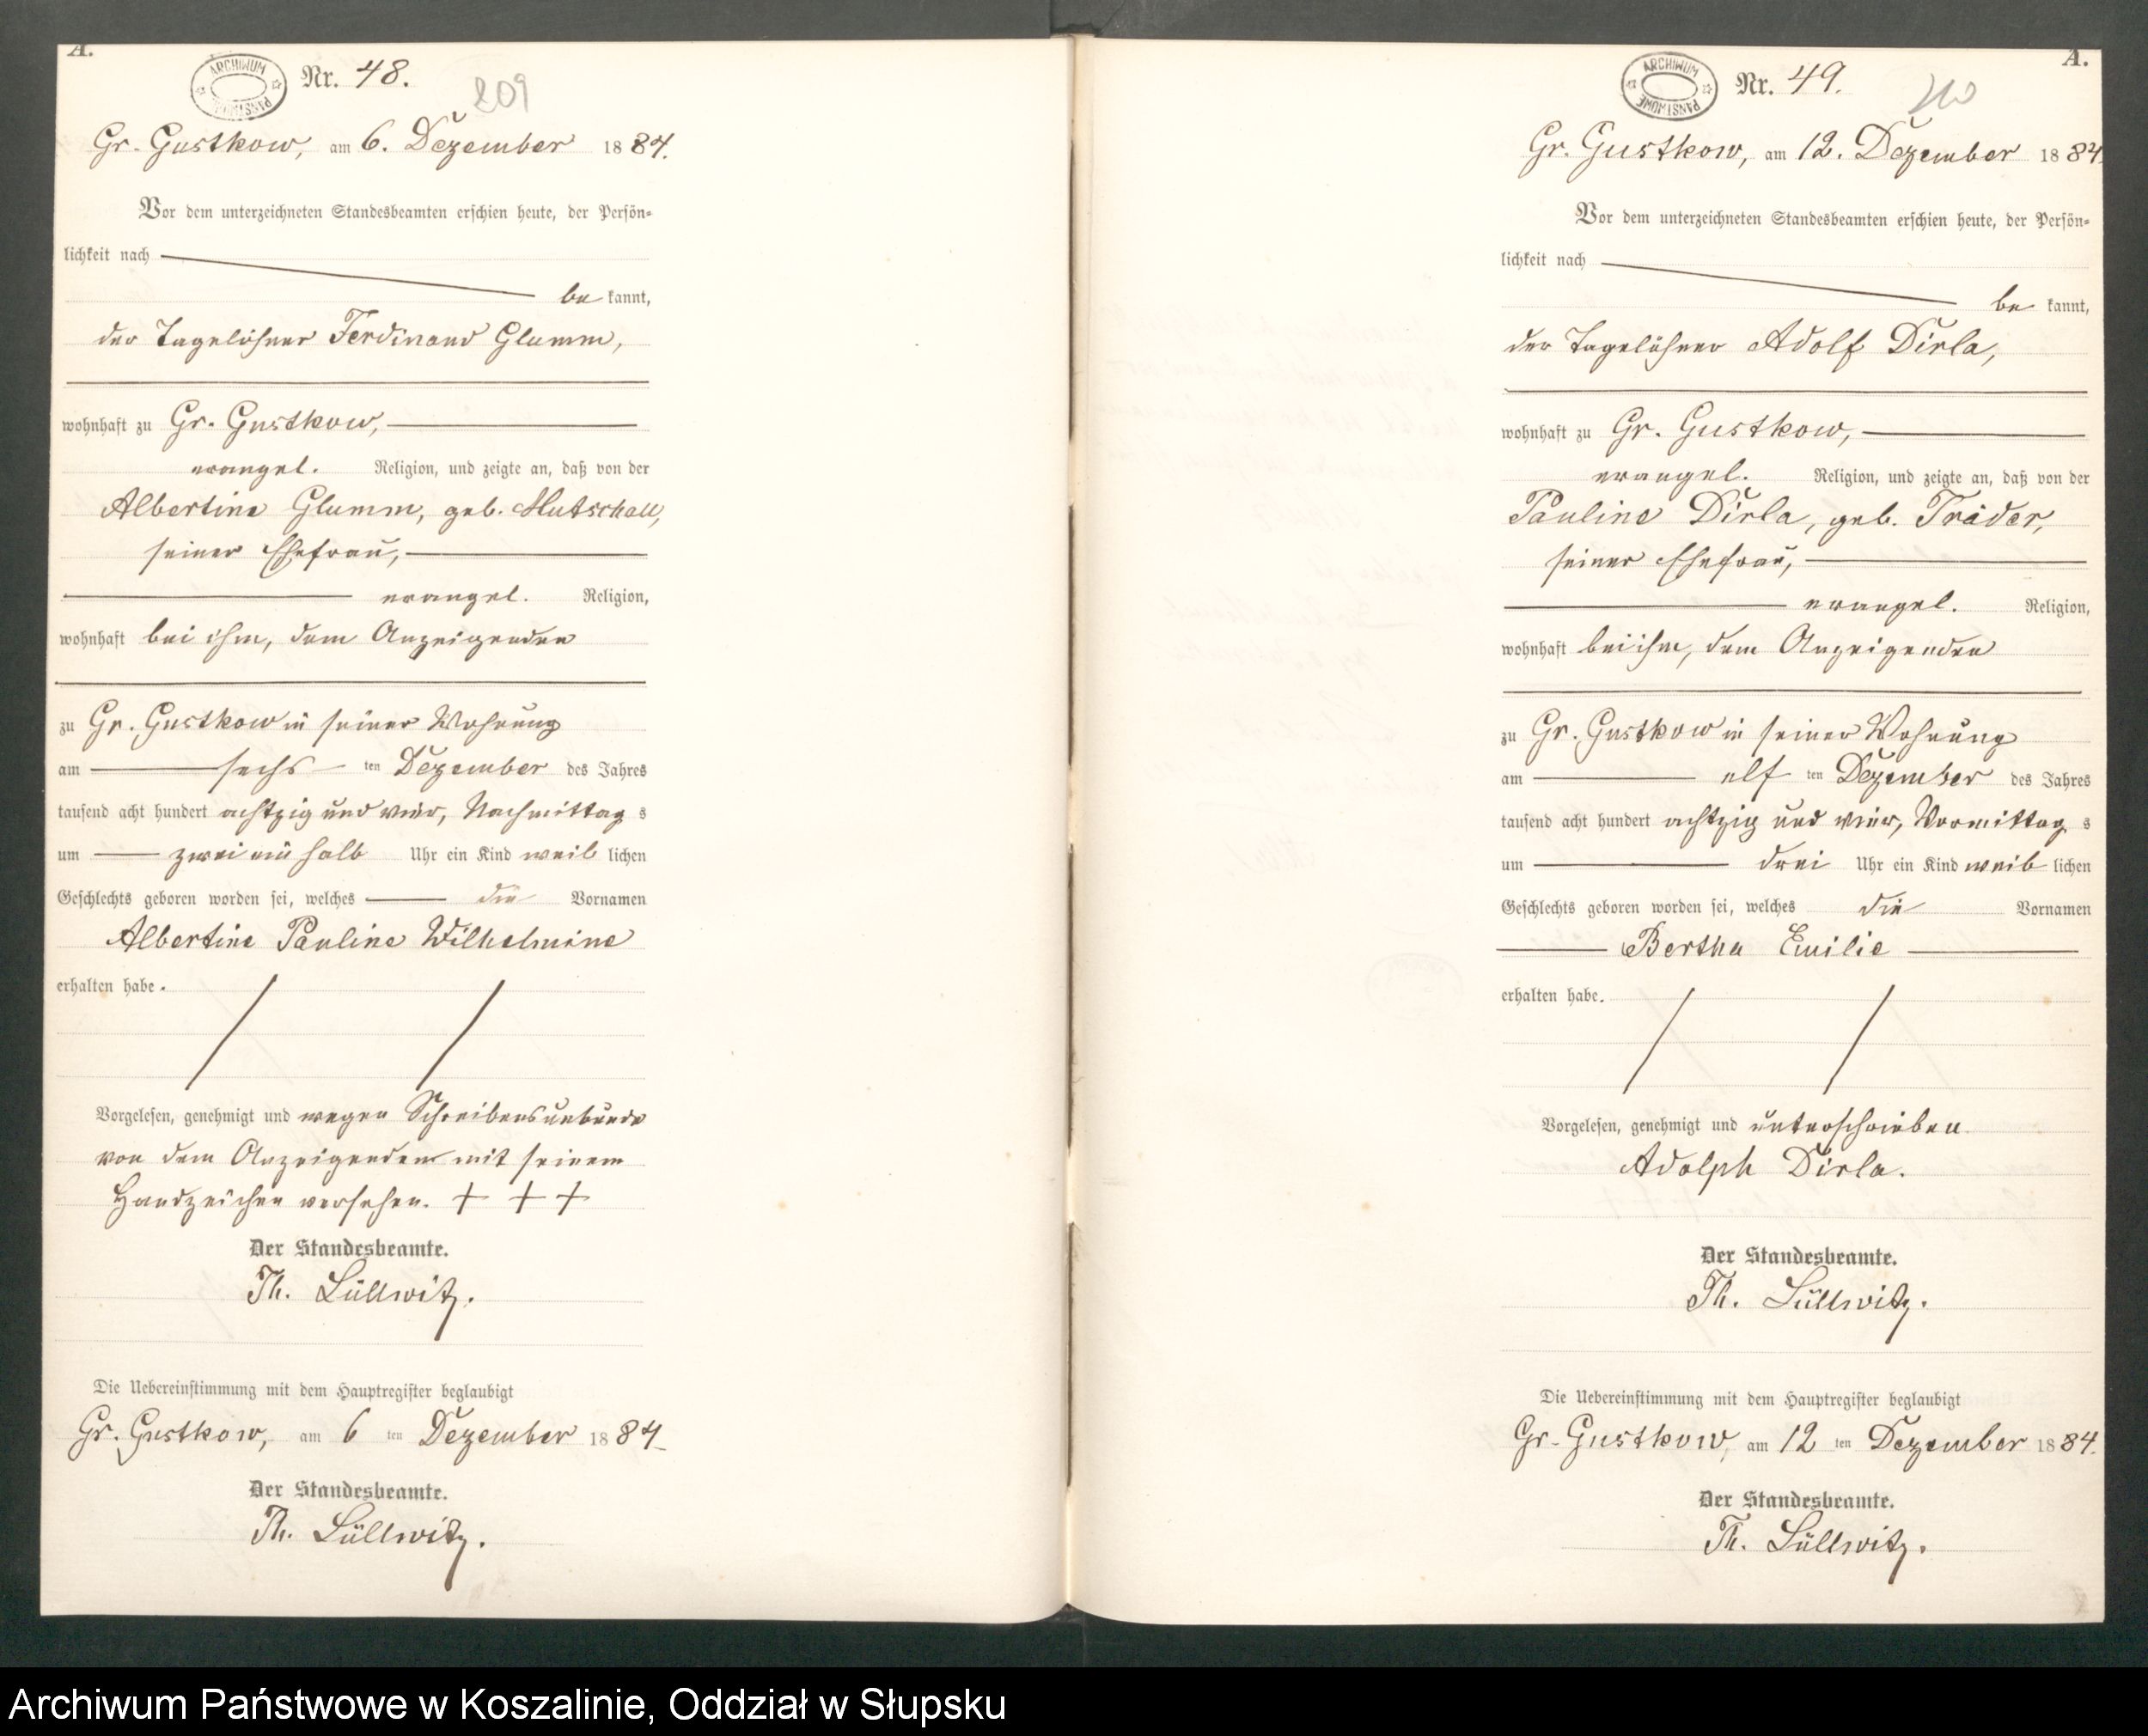 A.
ARCHIWUM PAŃSTWOWE
Nr. 48.
209
Gr. Gustkow, am 6. Dezember 1884.
Vor dem unterzeichneten Standesbeamten erschien heute, der Persön=
lichkeit nach
be kannt,
der Tagelöhner Ferdinand Glumm,
wohnhaft zu Gr. Gustkow,
evangel. Religion, und zeigte an, daß von der
Albertine Glumm, geb. Mutschall,
seiner Ehefrau,
evangel. Religion,
wohnhaft bei ihm, dem Anzeigenden
zu Gr. Gustkow in seiner Wohnung
am sechs ten Dezember des Jahres
tausend acht hundert achtzig und vier, Nachmittag s
um zwei ein halb Uhr ein Kind weib lichen
Geschlechts geboren worden sei, welches die Vornamen
Albertine Pauline Wilhelmine
erhalten habe.
Vorgelesen, genehmigt und wegen Schreibensunkunde
von dem Anzeigenden mit seinem
Handzeichen versehen. + + +
Der Standesbeamte.
Th. Lüllwitz.
Die Uebereinstimmung mit dem Hauptregister beglaubigt
Gr. Gustkow, am 6 ten Dezember 1884
Der Standesbeamte.
Th. Lüllwitz.
A.
ARCHIWUM PAŃSTWOWE
Nr. 49.
210
Gr. Gustkow, am 12. Dezember 1884
Vor dem unterzeichneten Standesbeamten erschien heute, der Persön=
lichkeit nach
be kannt,
der Tagelöhner Adolf Dirla,
wohnhaft zu Gr. Gustkow,
evangel. Religion, und zeigte an, daß von der
Pauline Dirla, geb. Träder,
seiner Ehefrau,
evangel. Religion,
wohnhaft bei ihm, dem Anzeigenden
zu Gr. Gustkow in seiner Wohnung
am elf ten Dezember des Jahres
tausend acht hundert achtzig und vier, Vormittag s
um drei Uhr ein Kind weib lichen
Geschlechts geboren worden sei, welches die Vornamen
Bertha Emilie
erhalten habe.
Vorgelesen, genehmigt und unterschrieben
Adolph Dirla.
Der Standesbeamte.
Th. Lüllwitz.
Die Uebereinstimmung mit dem Hauptregister beglaubigt
Gr. Gustkow, am 12 ten Dezember 1884.
Der Standesbeamte.
Th. Lüllwitz.
Archiwum Państwowe w Koszalinie, Oddział w Słupsku